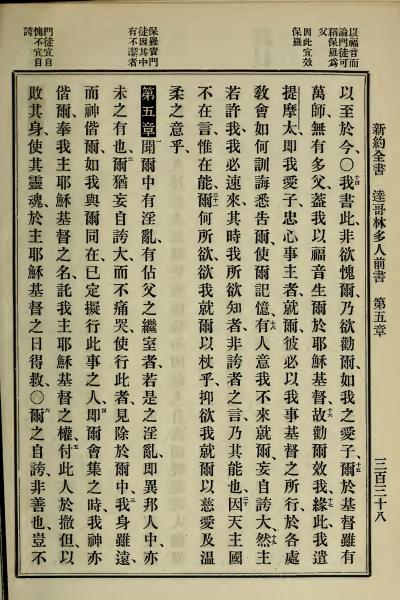 新約全書 達哥林多人前書 第五章 三百三十八
以福音而
論門徒可
稱保羅爲
父
因此宜效
保羅
保羅責門
徒因其中
有不潔者
門徒宜自
愧不宜自
誇
以至於今、○十四我書此非欲愧爾、乃欲勸爾、如我之愛子、十五爾於基督雖有
萬師、無有多父、蓋我以福音生爾於耶穌基督、十六故勸爾效我、十七緣此我遣
提摩太、即我愛子、忠心事主者、就爾、彼必以我事基督之所行、於各處
敎會如何訓誨、悉告爾、使爾記憶、十八有人意我不來就爾、妄自誇大、十九然主
若許我、我必速來、其時我所欲知者、非誇者之言、乃其能也、二十因天主國
不在言、惟在能、二十一爾何所欲、欲我就爾以杖乎、抑欲我就爾以慈愛及溫
柔之意乎、
第五章 一聞爾中有淫亂、有佔父之繼室者、若是之淫亂、即異邦人中亦
未之有也、二爾猶妄自誇大、而不痛哭、使行此者見除於爾中、三我身雖遠、
而神偕爾、如我與爾同在、已定擬行此事之人、四即爾會集之時、我神亦
偕爾、奉我主耶穌基督之名、託我主耶穌基督之權、五付此人於撒但、以
敗其身、使其靈魂、於主耶穌基督之日得救、○六爾之自誇、非善也、豈不